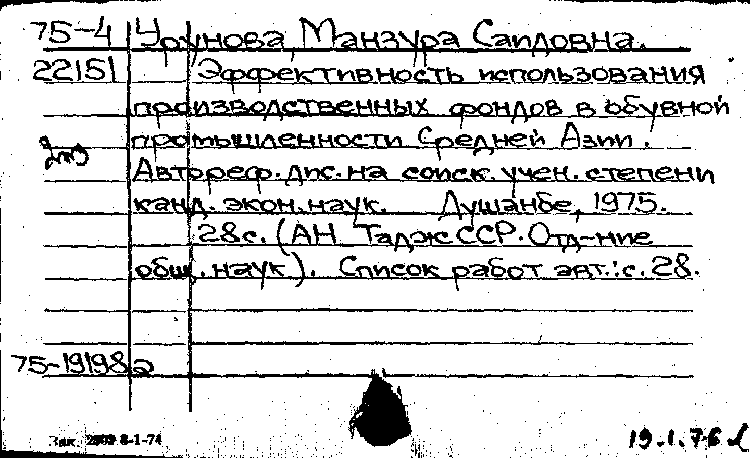 75-4 Урунова, Манзура Саидовна.
22151 Эффективность использования
производственных фондов в обувной
промышленности Средней Азии.
Автореф. дис. на соиск. учен. степени
канд. экон. наук. Душанбе, 1975.
28с. (АН ТаджССР. Отд-ние
общ. наук). Список работ авт.: с. 28.
75-19198а
Зак. 2909 8-1-74
19.1.76